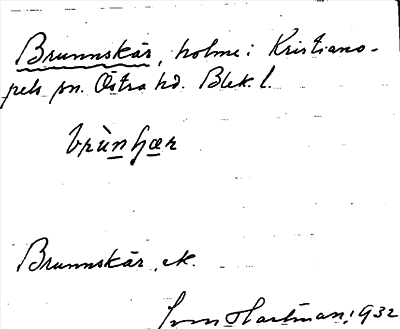 Brunnskär, holme i Kristiano-
pels sn. Östra hd. Blek. l.
brùnʃær
Brunnskär, ek.
Sven Hartman 1932